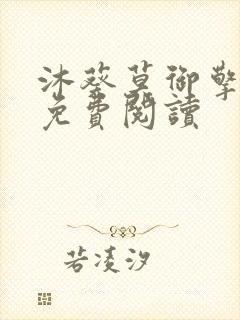 沐葵草御擎
免費閱讀
若凌汐